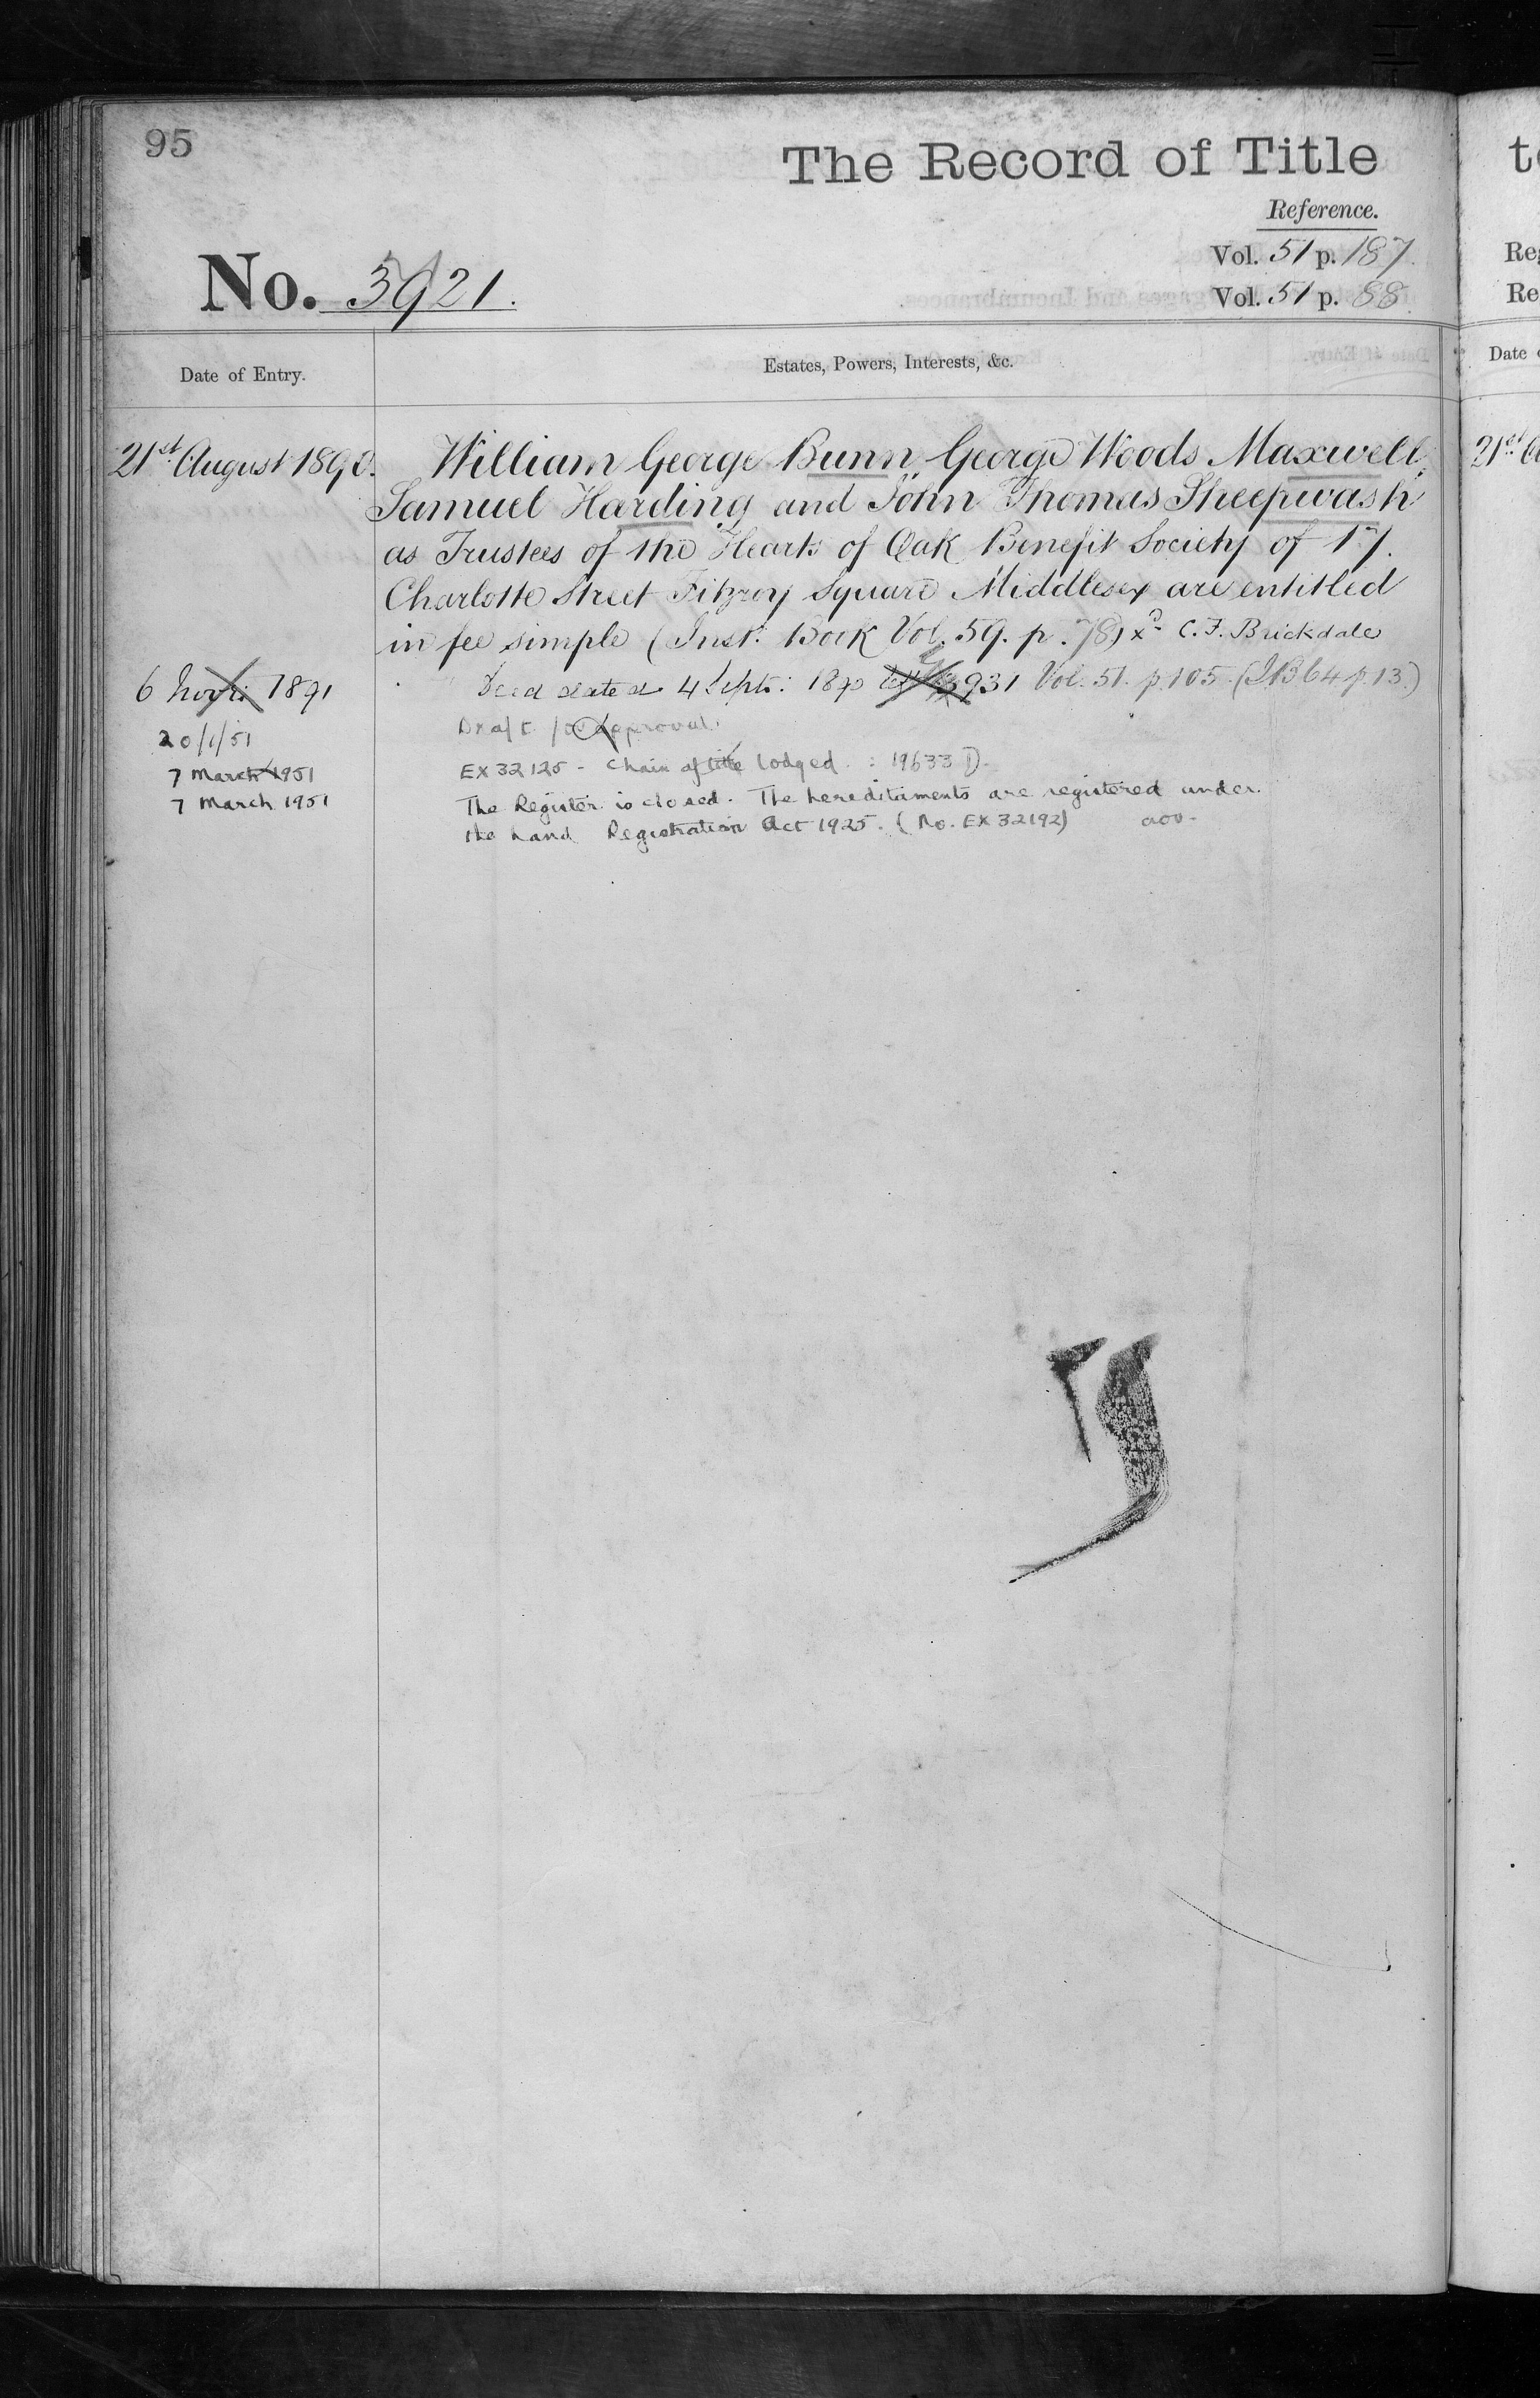 95
The Record of Title
Reference.
Vol. 51 p. 187.
No. 3921.
Vol. 51 p. 88.
Date of Entry.
Estates, Powers, Interests, &c.
21st August 1890. William George Bunn, George Woods Maxwell,
Samuel Harding and John Thomas Sheepwash
as Trustees of the Hearts of Oak Benefit Society of 17.
Charlotte Street Fitzroy Square Middlesex are entitled
in fee simple (Inst: Book Vol. 59. p. 78) xd C. F. Brickdale
6 Novr: 1891 Deed dated 4 Septr: 1890 3931 Vol. 51. p. 105. (IB 64 p. 13.)
20/1/51 Draft for approval.
7 March 1951 EX 32125 - Chain of title lodged. : 19633 D.
7 March 1951 The Register is closed. The hereditaments are registered under
the Land Registration Act 1925. (No. EX 32192)
to
Reg
Re
Date
21st